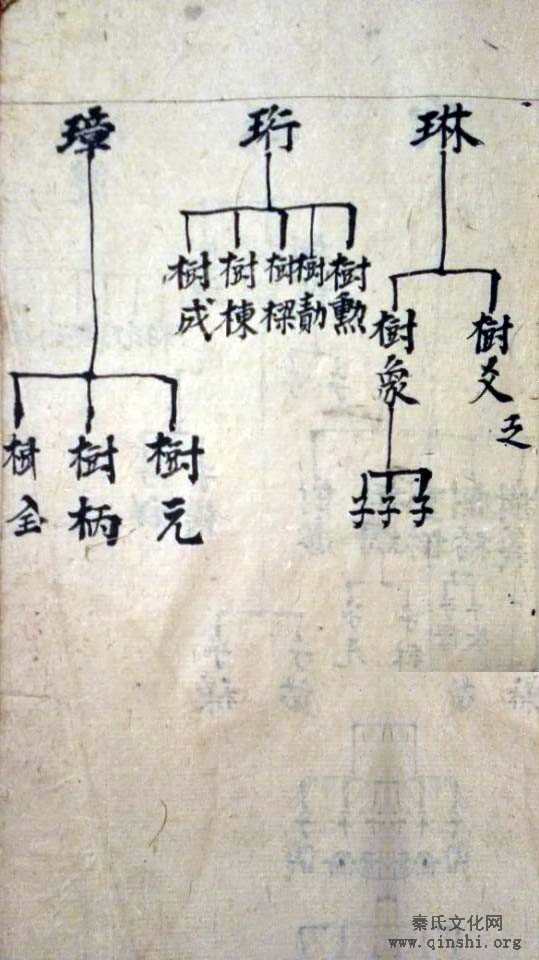 琳
珩
璋
樹爻
乏
樹象
子
子
子
樹勲
樹勛
樹樑
樹棟
樹成
樹元
樹柄
樹全
秦氏文化网
www.qinshi.org